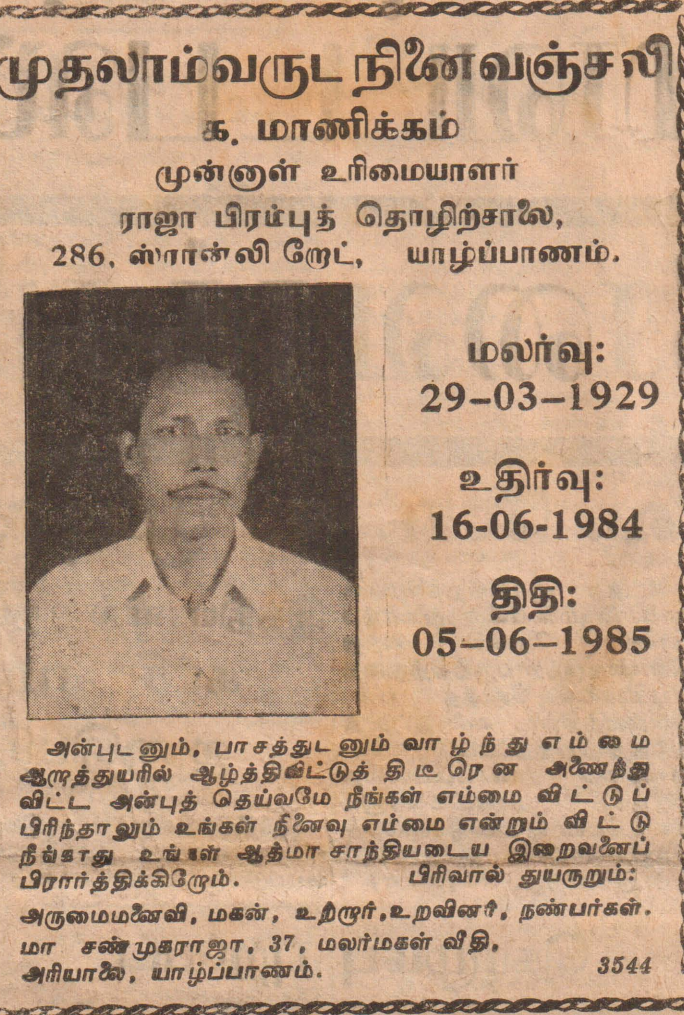 முதலாம்வருட நினைவஞ்சலி
க. மாணிக்கம்
முன்னாள் உரிமையாளர்
ராஜா பிரம்புத் தொழிற்சாலை,
286, ஸ்ரான்லி றோட், யாழ்ப்பாணம்.
மலர்வு:
29-03-1929
உதிர்வு:
16-06-1984
திதி:
05-06-1985
அன்புடனும், பாசத்துடனும் வாழ்ந்து எம்மை
ஆறாத்துயரில் ஆழ்த்திவிட்டுத் திடீரென அணைந்து
விட்ட அன்புத் தெய்வமே நீங்கள் எம்மை விட்டுப்
பிரிந்தாலும் உங்கள் நினைவு எம்மை என்றும் விட்டு
நீங்காது உங்கள் ஆத்மா சாந்தியடைய இறைவனைப்
பிரார்த்திக்கிறோம். பிரிவால் துயருறும்:
அருமைமனைவி, மகன், உற்றார், உறவினர், நண்பர்கள்.
மா சண்முகராஜா, 37, மலர்மகள் வீதி,
அரியாலை, யாழ்ப்பாணம். 3544